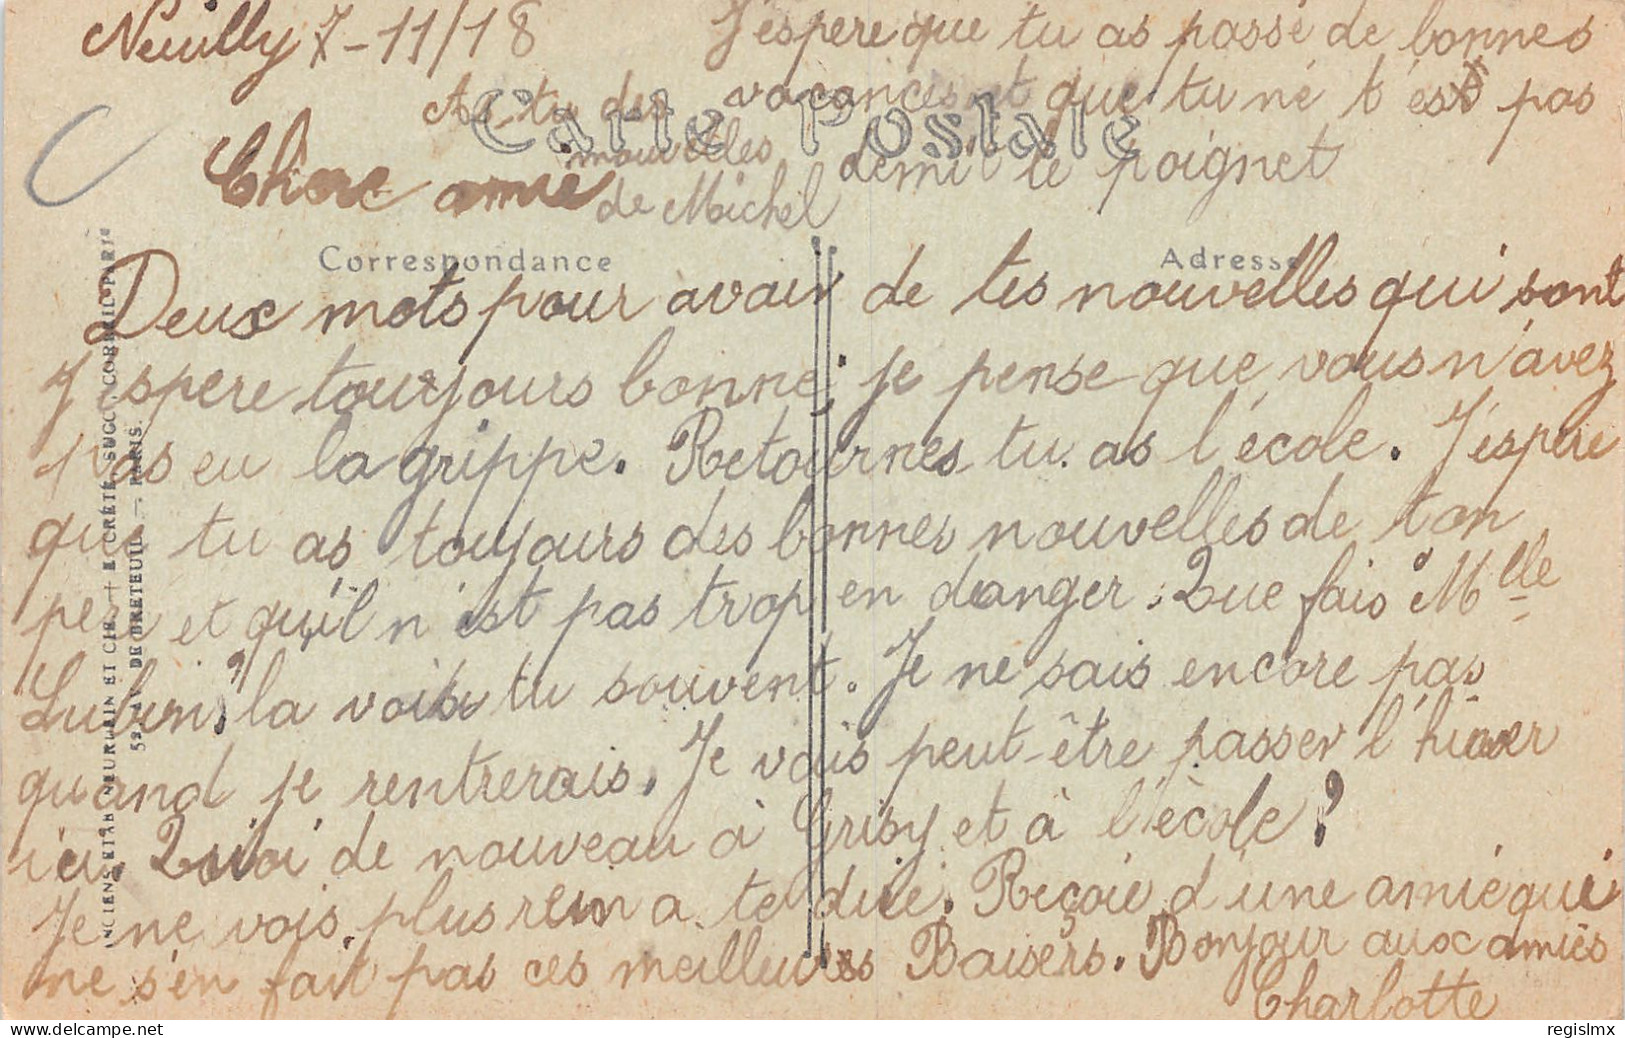 Neuilly 7-11/18
J'espere que tu as passé de bonnes
vacances et que tu ne t'est pas
demit le poignet
As-tu des
nouvelles
de Michel
Carte Postale
Chere amie
Correspondance
Adresse
Deux mots pour avoir de tes nouvelles qui sont
J'espere toujours bonne, je pense que vous n'avez
pas eu la grippe. Retournes tu as l'école. J'éspère
que tu as toujours des bonnes nouvelles de ton
pere et qu'il n'est pas trop en danger. Que fais Mlle
Lubin? la vois tu souvent. Je ne sais encore pas
quand je rentrerais. Je vais peut-être passer l'hiver
ici. Quoi de nouveau à Grisy et à l'école?
Je ne vois plus rien a te dire. Reçoie d'une amie qui
ne s'en fait pas ces meilleures Baisers. Bonjour aux amies
Charlotte
ANCIENS ETAB. NEURDEIN ET CIE. - E. CRÉTÉ, SUCC. CORBEIL-PARIS
52, AV. DE BRETEUIL. - PARIS.
regislmx